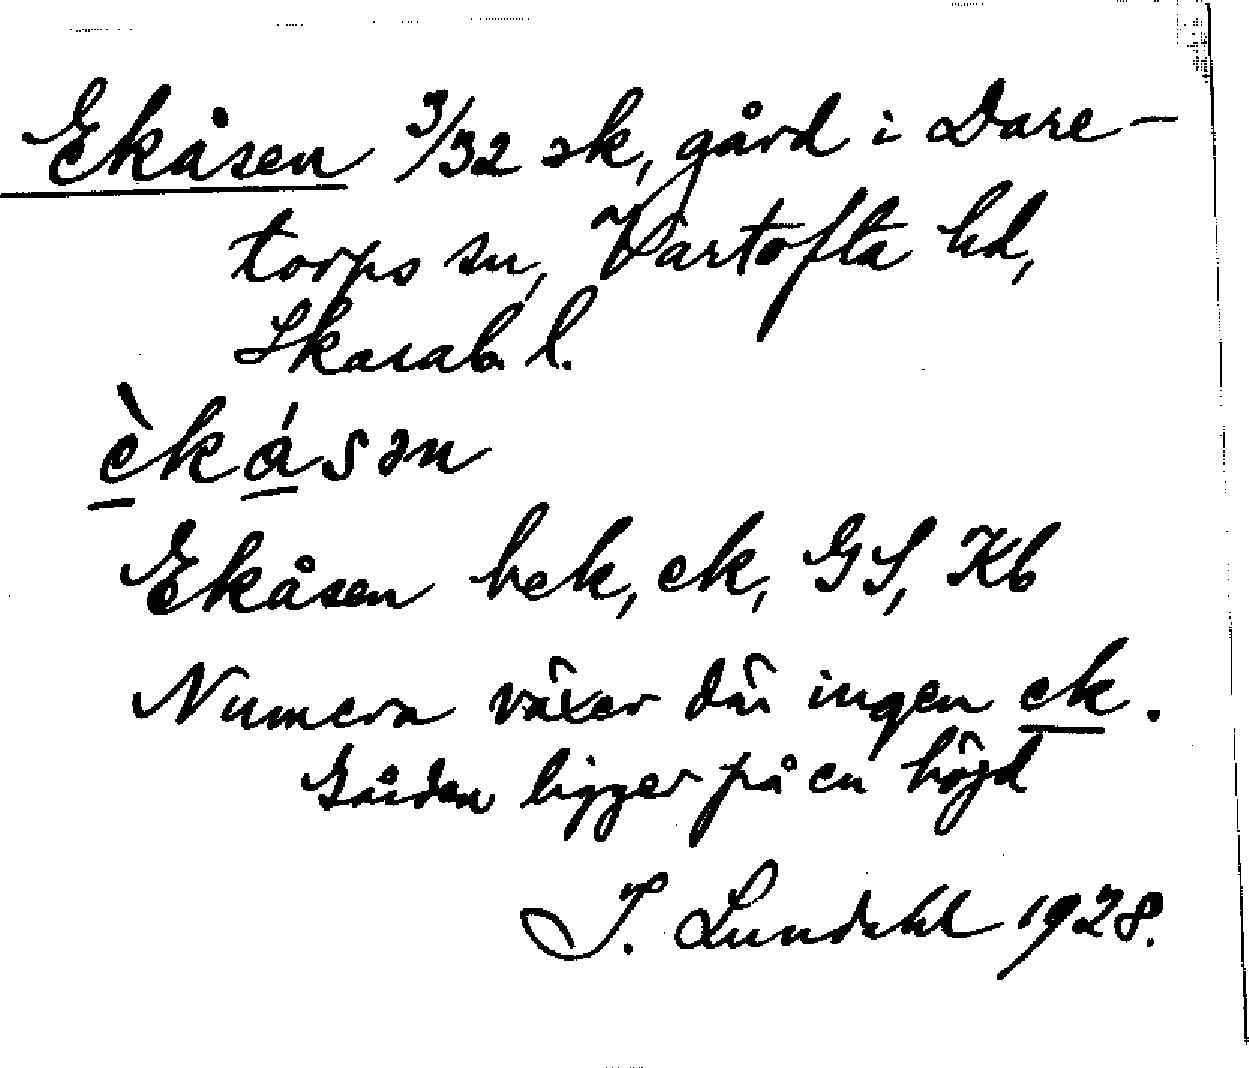 Ekåsen 3/32 sk, gård i Dare-
torps sn, Vartofta hd,
Skarab. l.
èkásən
Ekåsen hek, ek, GS, Kb
Numera växer där ingen ek.
Gården ligger på en höjd
I. Lundahl 1928.